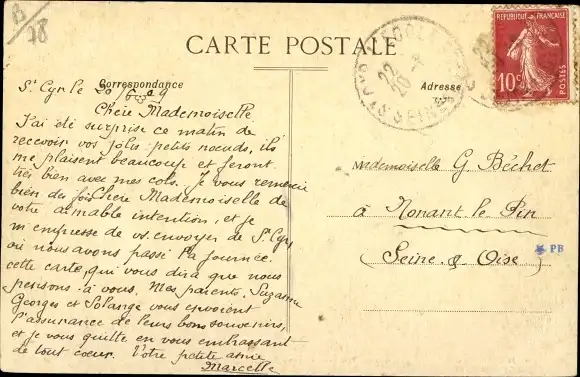 B
78
CARTE POSTALE
Correspondance
Adresse
REPUBLIQUE FRANÇAISE
10c
POSTES
St Cyr le 20/6/09
Chère Mademoiselle
J'ai été surprise ce matin de
recevoir vos jolis petits noeuds, ils
me plaisent beaucoup et feront
très bien avec mes cols. Je vous remercie
bien des fois Chère Mademoiselle de
votre aimable intention, et je
m'empresse de vs. envoyer de St Cyr,
où nous avons passé la journée
cette carte, qui vous dira que nous
pensons à vous. Mes parents, Suzanne
Georges et Solange vous envoient
l'assurance de leurs bons souvenirs,
et je vous quitte en vous embrassant
de tout coeur. Votre petite amie
Marcelle
Mademoiselle G Béchet
à Nonant le Pin
(Seine & Oise)
PB